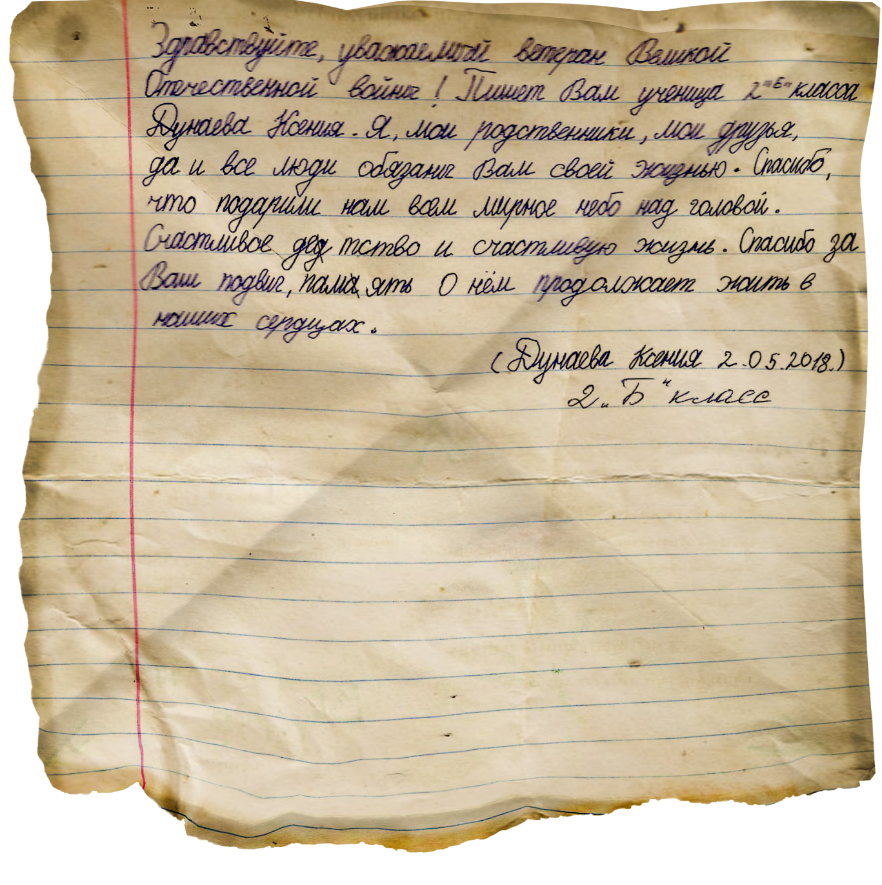 Здравствуйте, уважаемый ветеран Великой
Отечественной войны! Пишет Вам ученица 2 "Б" класса
Дунаева Ксения. Я, мои родственники, мои друзья,
да и все люди обязаны Вам своей жизнью. Спасибо,
что подарили нам всем мирное небо над головой.
Счастливое дед тство и счастливую жизнь. Спасибо за
Ваш подвиг, пама ять о нём продолжает жить в
наших сердцах.
(Дунаева Ксения 2.05.2018.)
2 „Б“ класс